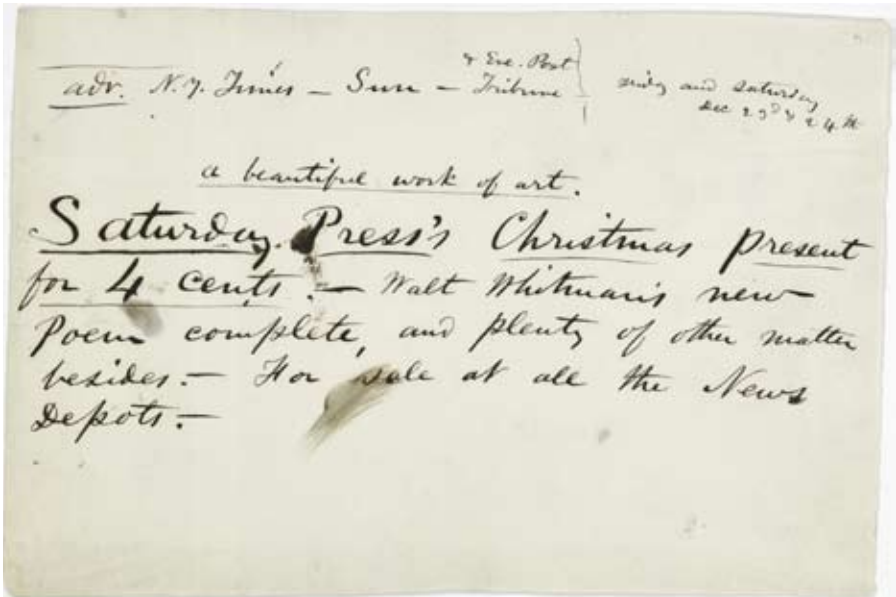 & Eve. Post
adv. N.Y. Times – Sun – Tribune
friday and saturday
Dec 23d & 24th
a beautiful work of art.
Saturday Press's Christmas present
for 4 cents. — Walt Whitman's new
Poem complete, and plenty of other matter
besides. — For sale at all the News
Depots. —